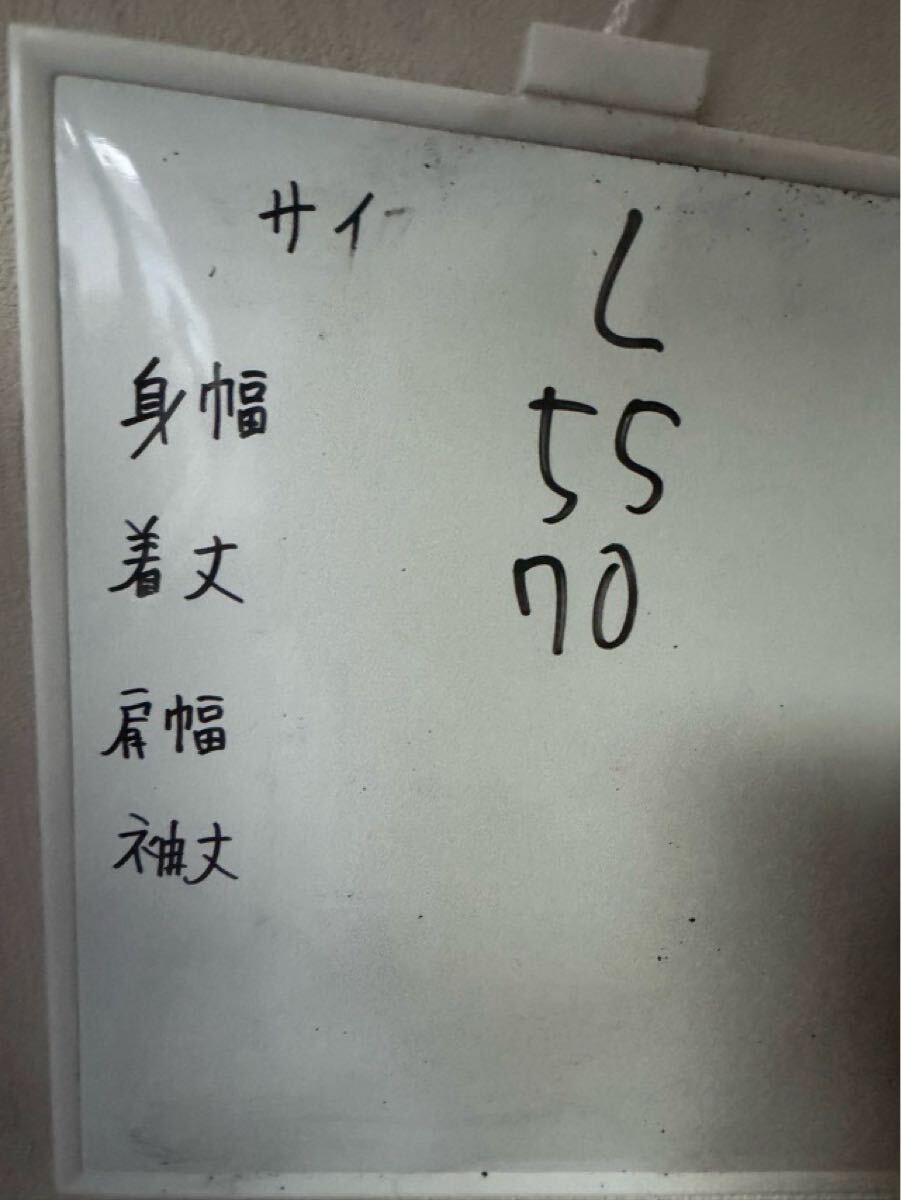 サイ L
身幅 55
着丈 70
肩幅
袖丈